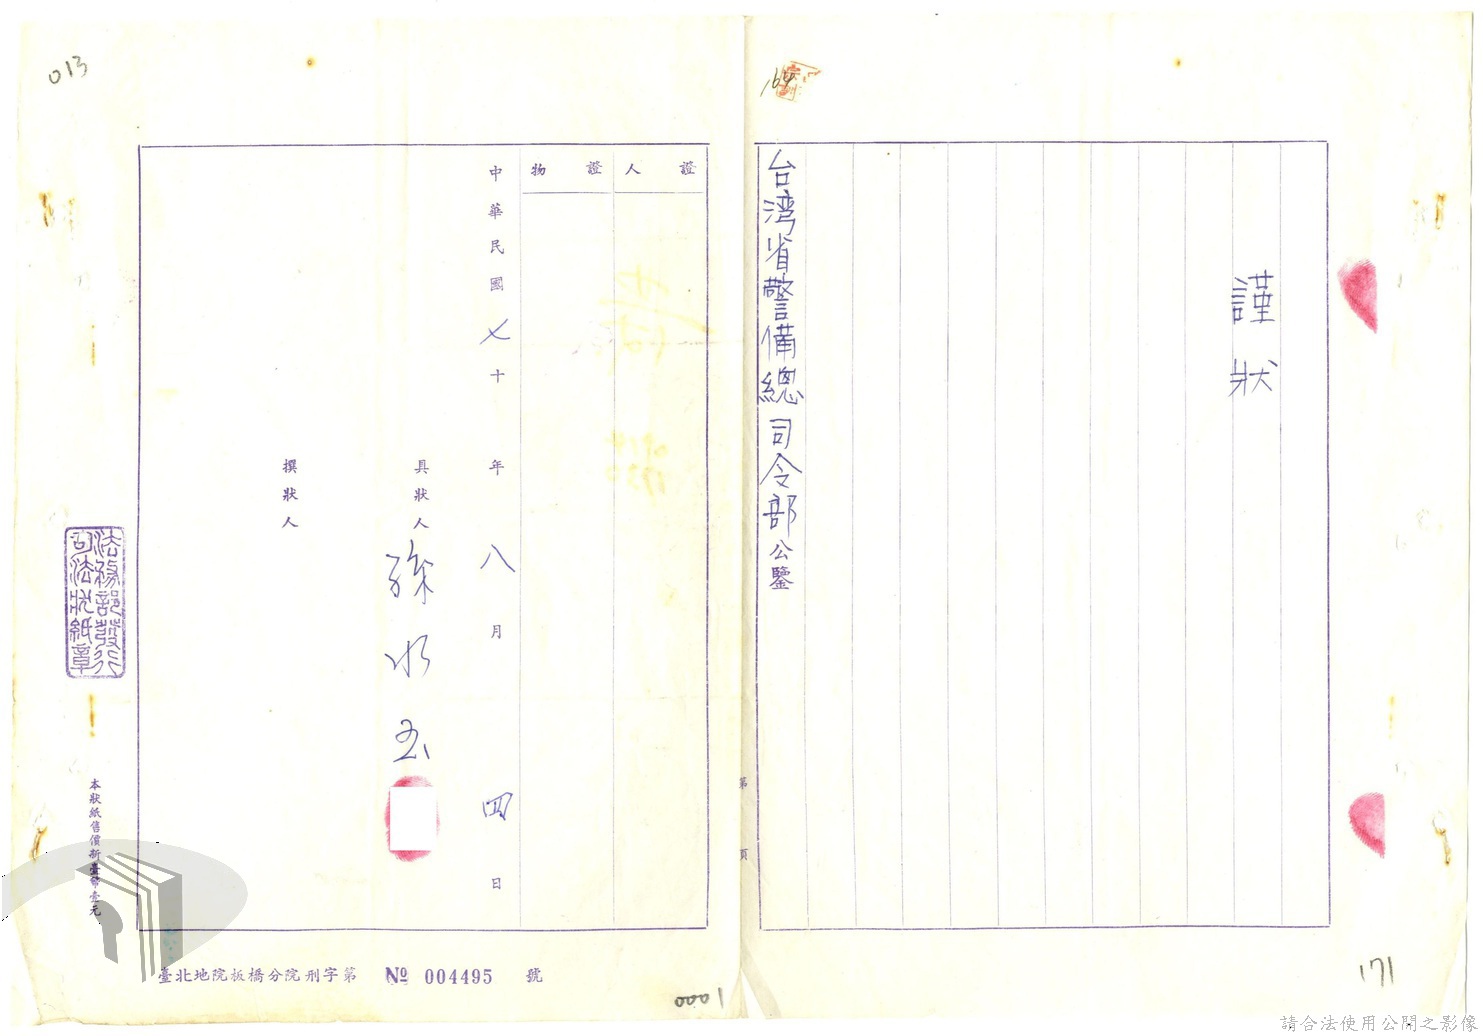 謹狀
台湾省警備總司令部公鑒
164
171
第 頁
證人
證物
中華民國七十年八月四日
具狀人 孫水玉
撰狀人
013
法務部發行
司法狀紙章
本狀紙售價新臺幣壹元
臺北地院板橋分院刑字第 № 004495 號
1000
請合法使用公開之影像